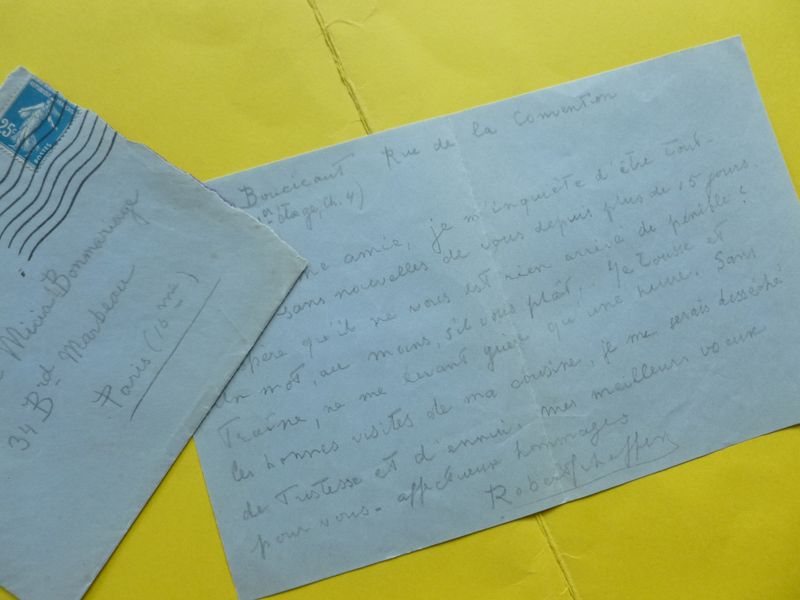 25c
POSTES
Bonmariage
34 Brd Marbeau
Paris (16me)
Boucicaut Rue de la Convention
étage, Ch. 4)
amie, je m'inquiète d'être tout-
sans nouvelles de vous depuis plus de 15 jours.
qu'il ne vous est rien arrivé de pénible?
Un mot, au moins, s'il vous plaît. Je tousse et
traîne, ne me levant guère qu'une heure. Sans
les bonnes visites de ma cousine, je me serais desséché
de tristesse et d'ennui. mes meilleurs voeux
pour vous. affectueux hommages
Robert Scheffer